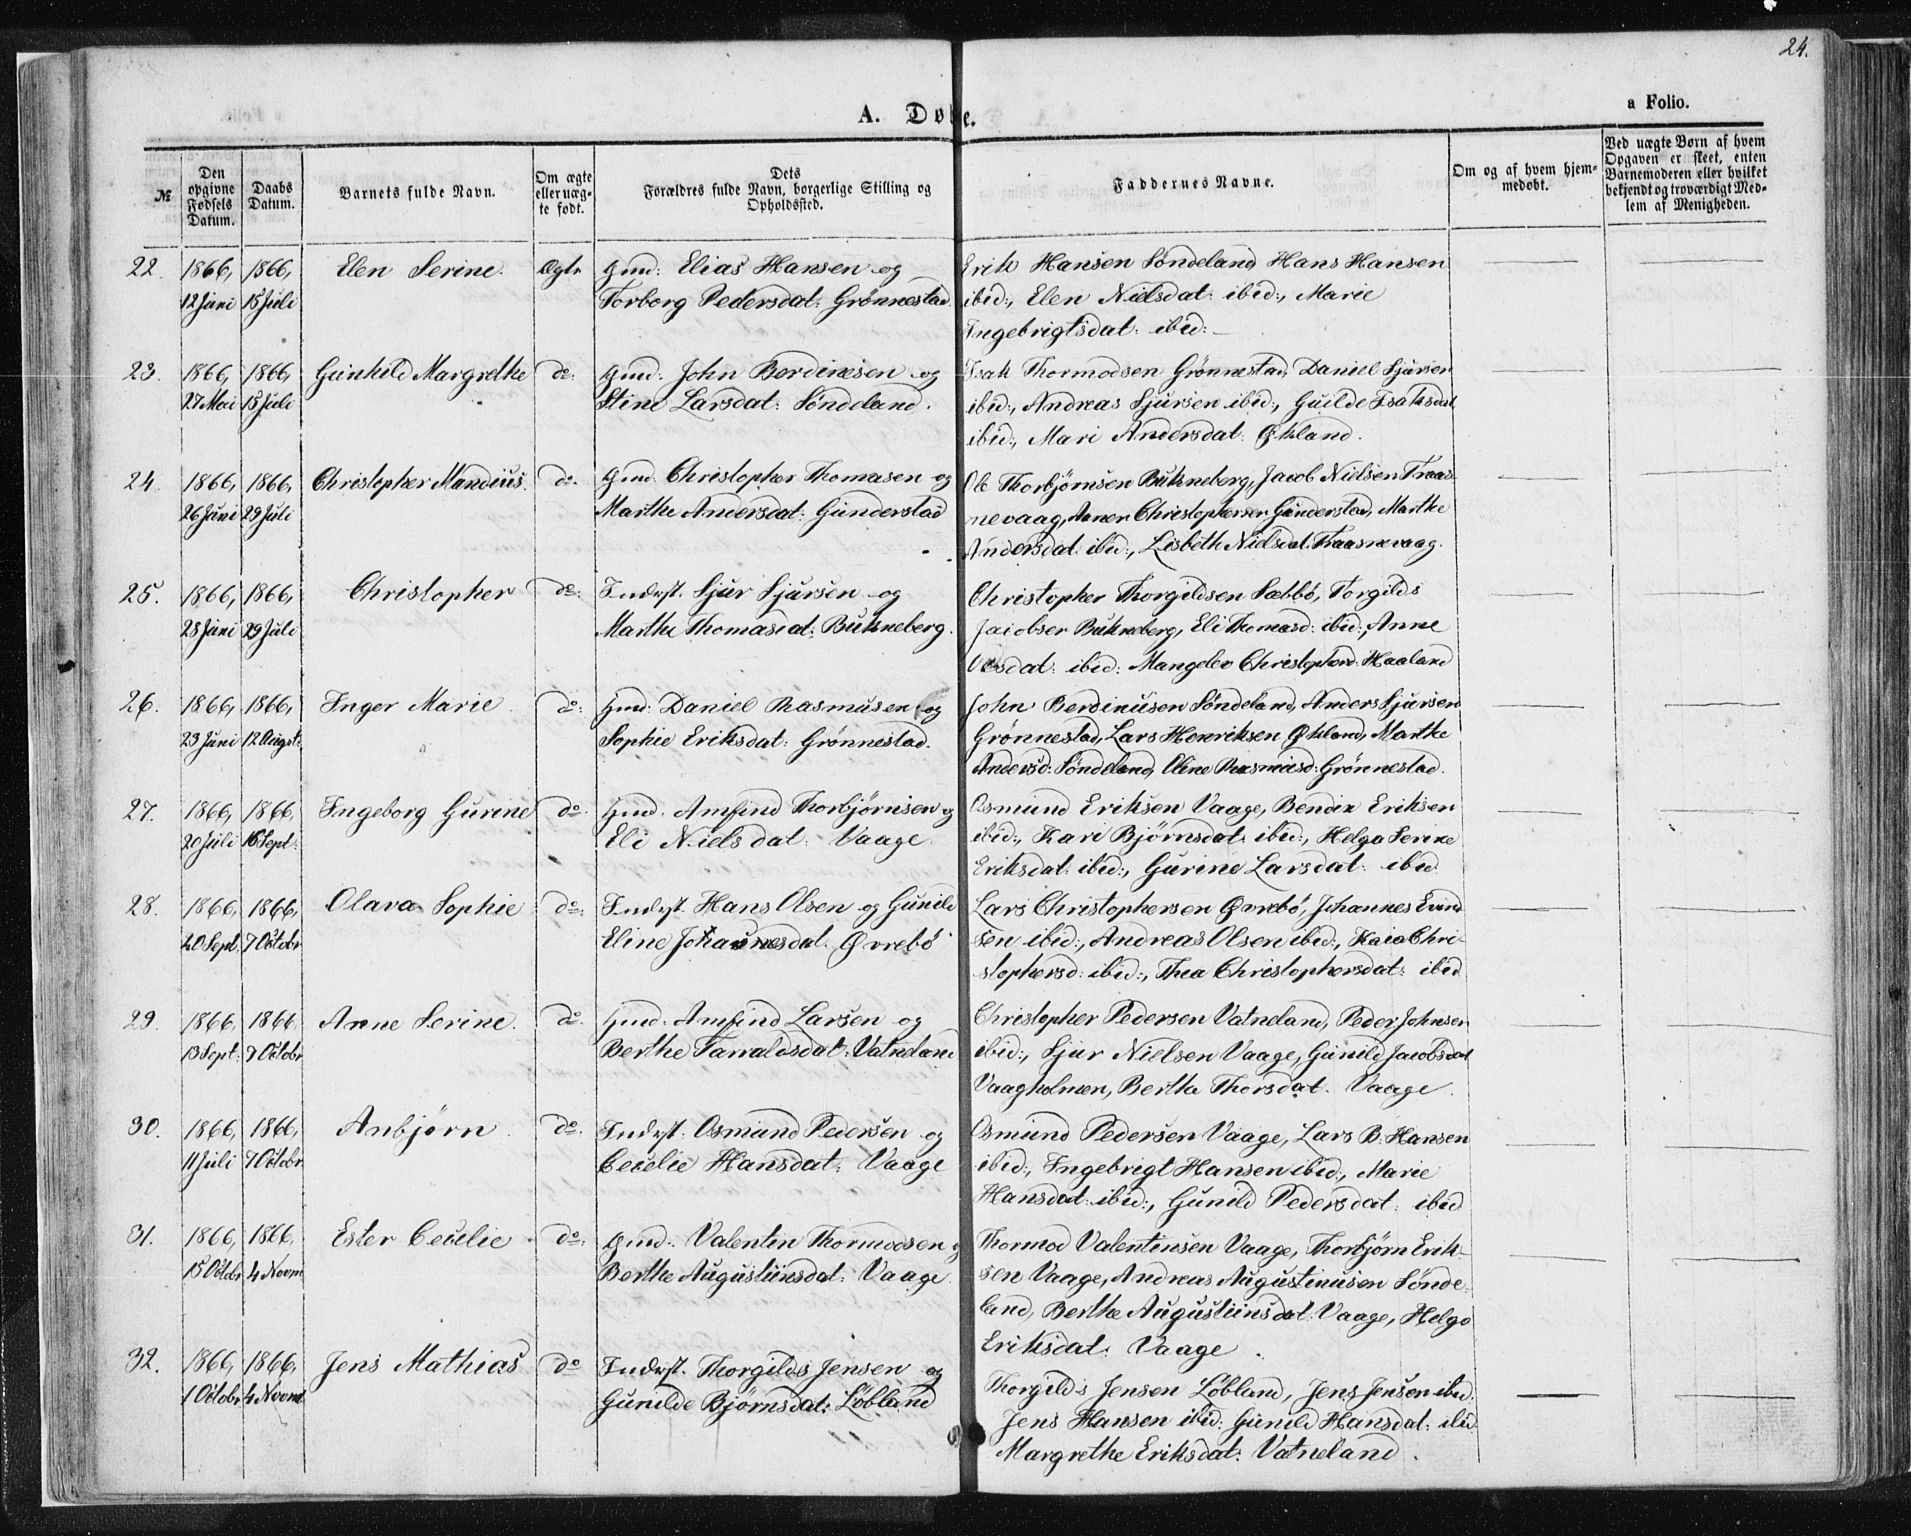 24.
A. Døbe.
a Folio.
№
Den opgivne Fødsels Datum.
Daabs Datum.
Barnets fulde Navn.
Om ægte eller uægte født.
Dets Forældres fulde Navn, borgerlige Stilling og Opholdssted.
Faddernes Navne.
Om og af hvem hjemmedøbt.
Ved uægte Børn af hvem Opgaven er skeet, enten Barnemoderen eller hvilket bekjendt og troværdigt Medlem af Menigheden.
22. 1866, 1866, Elen Serine. Ægte Gmd: Elias Hansen og
12 Juni 15 Juli Torborg Pedersdat: Grønnestad.
Erik Hansen Søndeland, Hans Hansen
ibid:, Elen Nielsdat: ibid:, Marie
Ingebrigtsdat: ibid:
23. 1866, 1866, Gunhild Margrethe do: Gmd: John Berdinesen og
27 Mai 15 Juli Stine Larsdat: Søndeland.
Isak Thormodsen Grønnestad, Daniel Sjursen
ibid:, Andreas Sjursen ibid:, Guilde Isaksdat
ibid:, Mari Andersdat: Økland.
24. 1866, 1866, Christopher Mandius. do. Gmd. Christopher Thomasen og
26 Juni 29 Juli Marthe Andersdat: Gunderstad
Ole Thorbjørnsen Bukneberg, Jacob Nielsen Traas-
nevaag, Christophersen Gunderstad, Marthe
Andersdat: ibid:, Lisbeth Nielsdat: Traasnevaag.
25. 1866, 1866, Christopher do: Inderst. Sjur Sjursen og
28 Juni 29 Juli Marthe Thomasdat: Bukneberg.
Christopher Thorgildsen Sæbbø, Torgilds
Jacobsen Bukneberg, Eli Thomasd: ibid:, Anne
ibid: Mangelev Christophersd: Haaland
26. 1866, 1866, Inger Marie. do: Gmd: Daniel Rasmusen og
23 Juni 12 August: Sophie Eriksdat: Grønnestad.
John Berdinusen Søndeland, Anders Sjursen
Grønnestad, Lars Henriksen Økland, Marthe
Andersd: Søndeland, Oline Rasmusd: Grønnestad.
27. 1866, 1866, Ingeborg Gurine do: Gmd. Amfind Thorbjørnsen og
20 Juli 16 Sept: Eli Nielsdat: Vaage
Osmund Eriksen Vaage, Bendix Eriksen
ibid:, Kari Bjørnsdat: ibid:, Helga Serine
Eriksdat: ibid:, Gurine Larsdat: ibid
28. 1866, 1866, Olava Sophie do: Inderst. Hans Olsen og Gunild
20 Sept. 7 Octobr Eline Johannesdat: Øvrebø
Lars Christophersen Øvrebø, Johannes Evind
sen ibid:, Andreas Olsen ibid:, Kaia Chri-
stophersd: ibid:, Thea Christophersdat: ibid
29. 1866, 1866, Anne Serine. do. Gmd. Amfind Larsen og
13 Sept: 7 Octobr Berthe Taraldsdat: Vatneland
Christopher Pedersen Vatneland, Peder Johnsen
ibid:, Sjur Nielsen Vaage, Gunild Jacobsdat
Vaagholmen, Bertha Thorsdat. Vaage.
30. 1866, 1866, Anbjørn. do. Inderst. Osmund Pedersen og
11 Juli 7 Octobr Cecelie Hansdat: Vaage
Osmund Pedersen Vaage, Lars B: Hansen
ibid:, Ingebrigt Hansen ibid:, Marie
Hansdat: ibid:, Gunild Pedersdat: ibid
31. 1866, 1866, Ester Cecelie do: Gmd: Valentin Thormodsen og
15 Octobr 4 Novm Berthe Augustinsdat: Vaage
Thormod Valentinsen Vaage, Thorbjørn Erik-
sen Vaage, Andreas Augustinusen Sønde-
land, Berthe Augustinsdat: Vaage, Helga
Eriksdat: Vaage.
32. 1866, 1866, Jens Mathias do Inderst. Thorgilds Jensen og
1 Octobr 4 Novmb Gunilde Bjørnsdat: Løbland
Thorgilds Jensen Løbland, Jens Jensen ibid.
Jens Hansen ibid: Gunild Hansdat: ibid.
Margrethe Eriksdat: Vatneland.